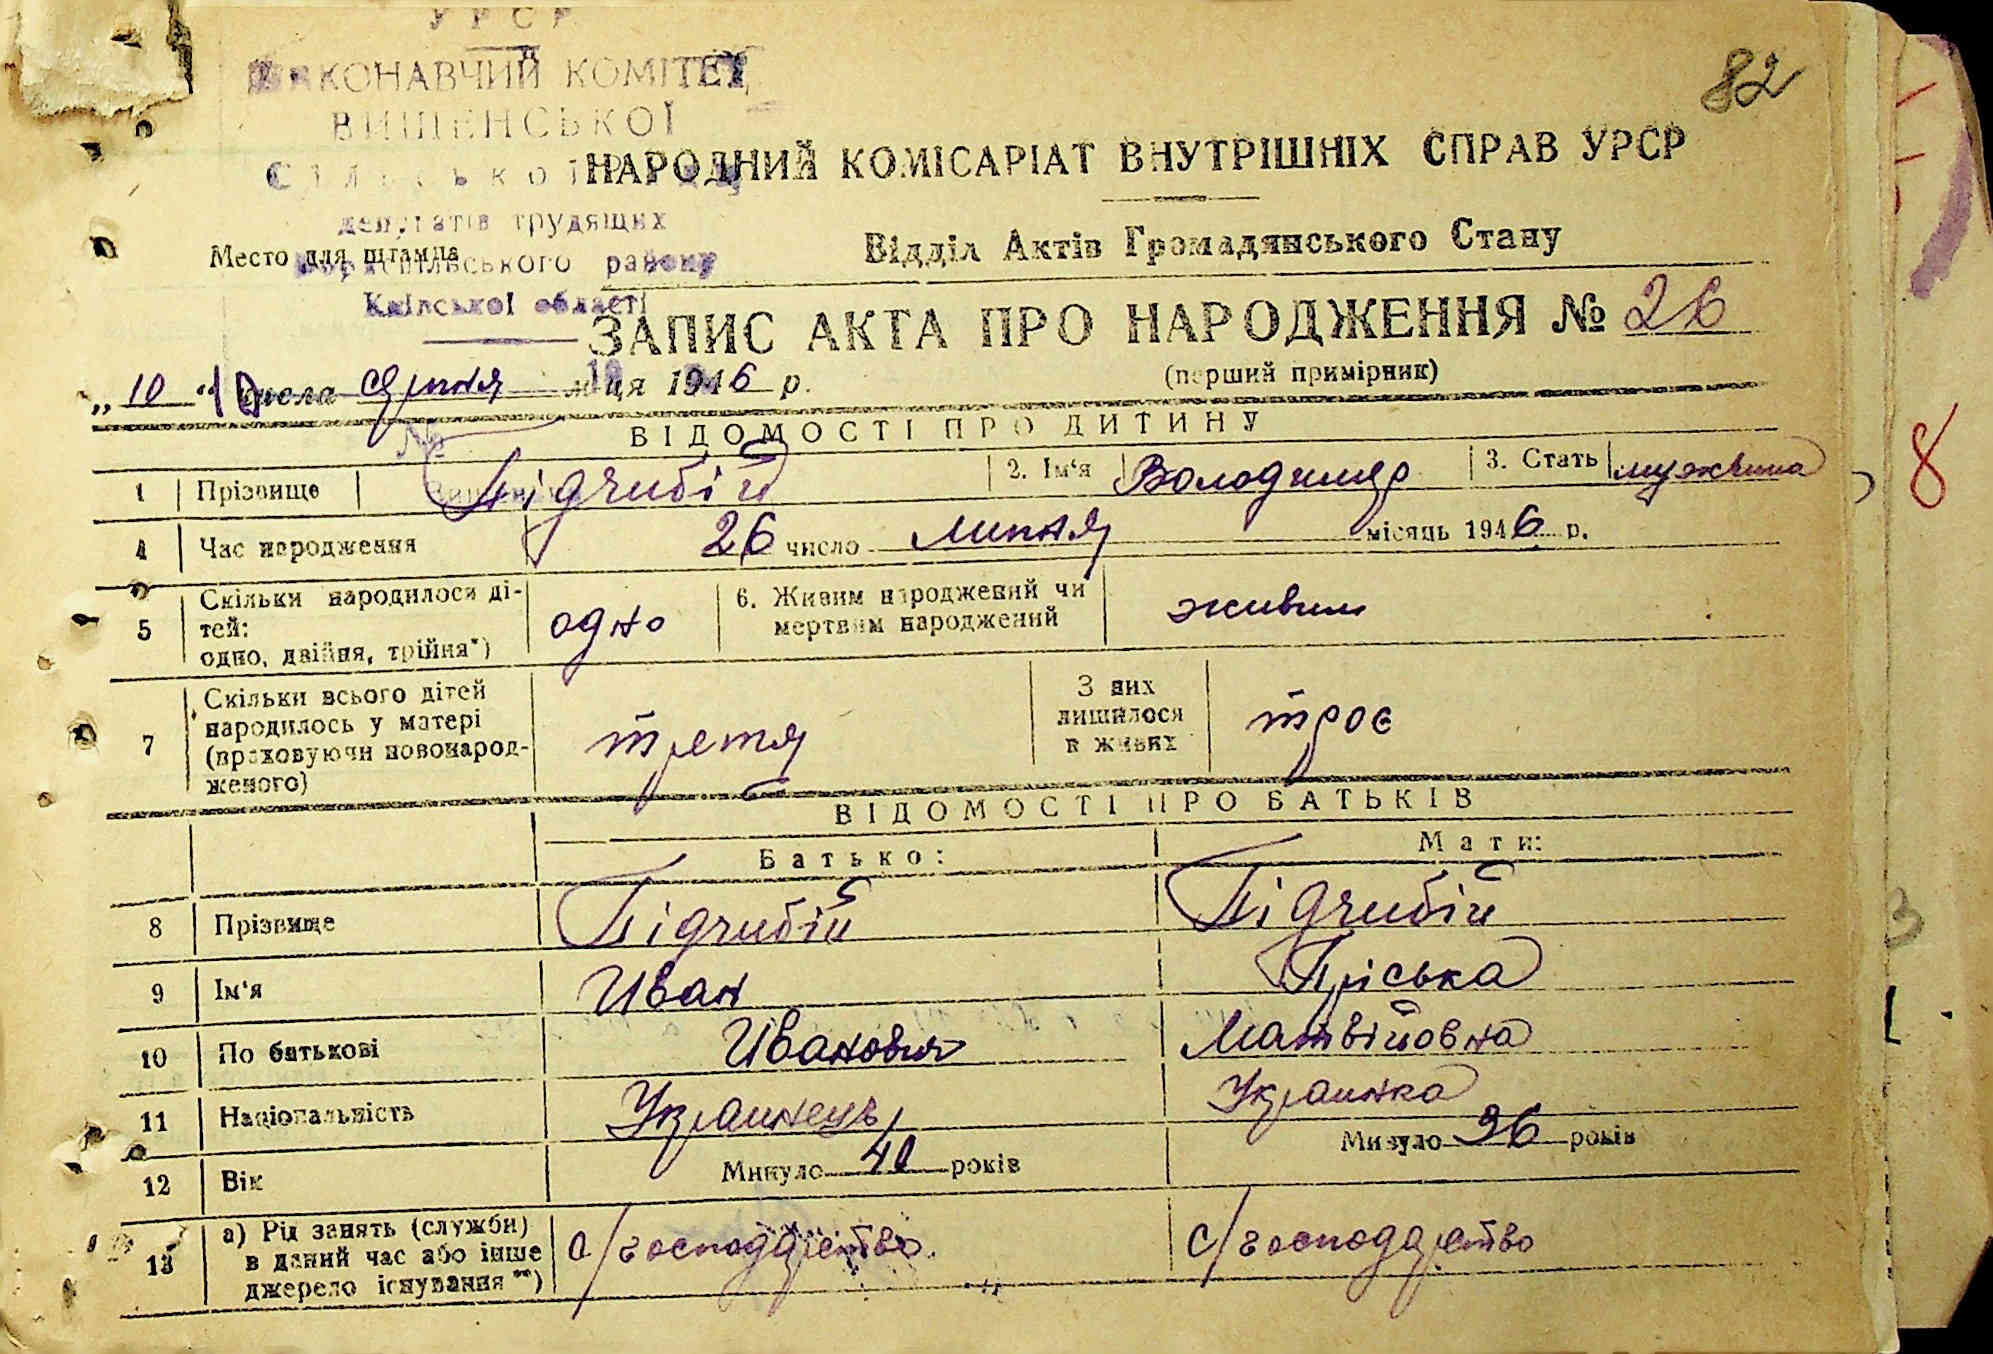 УРСР
82
ВИКОНАВЧИЙ КОМІТЕТ
ВИШЕНСЬКОЇ
Сільської
НАРОДНИЙ КОМІСАРІАТ ВНУТРІШНІХ СПРАВ УРСР
депутатів трудящих
Место для штампа
району
Відділ Актів Громадянського Стану
Київської області
ЗАПИС АКТА ПРО НАРОДЖЕННЯ № 26
(перший примірник)
„10“ числа серпня м-ця 1946 р.
№
ВІДОМОСТІ ПРО ДИТИНУ
1 Прізвище Підгибій 2. Ім‘я Володимир 3. Стать мужчина
8
4 Час народження 26 число липня місяць 1946 р.
5 Скільки народилося ді-
тей:
одно, двійня, трійня*) одно 6. Живим народжений чи
мертвим народжений живим
7 Скільки всього дітей
народилось у матері
(враховуючи новонарод-
женого) третя З них
лишилося
в живих троє
ВІДОМОСТІ ПРО БАТЬКІВ
Батько: Мати:
8 Прізвище Підгибій Підгибій
9 Ім‘я Иван Пріська
10 По батькові Иванович Матвійовна
11 Національність Украинець Украинка
12 Вік Минуло 40 років Минуло 36 років
13 а) Рід занять (служби)
в даний час або інше
джерело існування **) с/господарство с/господарство